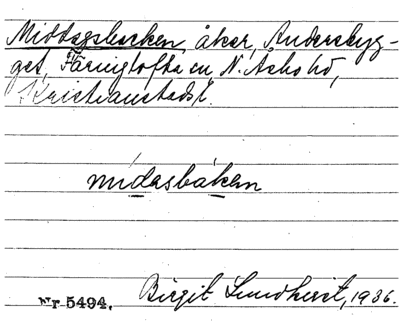 Middagsbacken, åker, Andersbyg-
get, Färingtofta sn, N. Åsbo hd,
Kristianstads l.
mídasbáken
Nr 5494. Birgit Lundkvist, 1936.